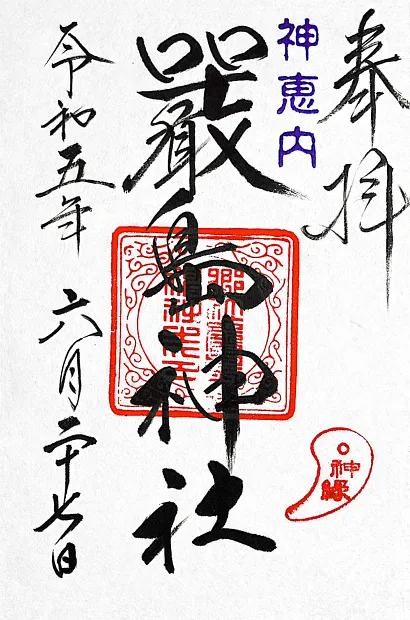 奉拝
神恵内
嚴島神社
令和五年 六月二十七日
神縁